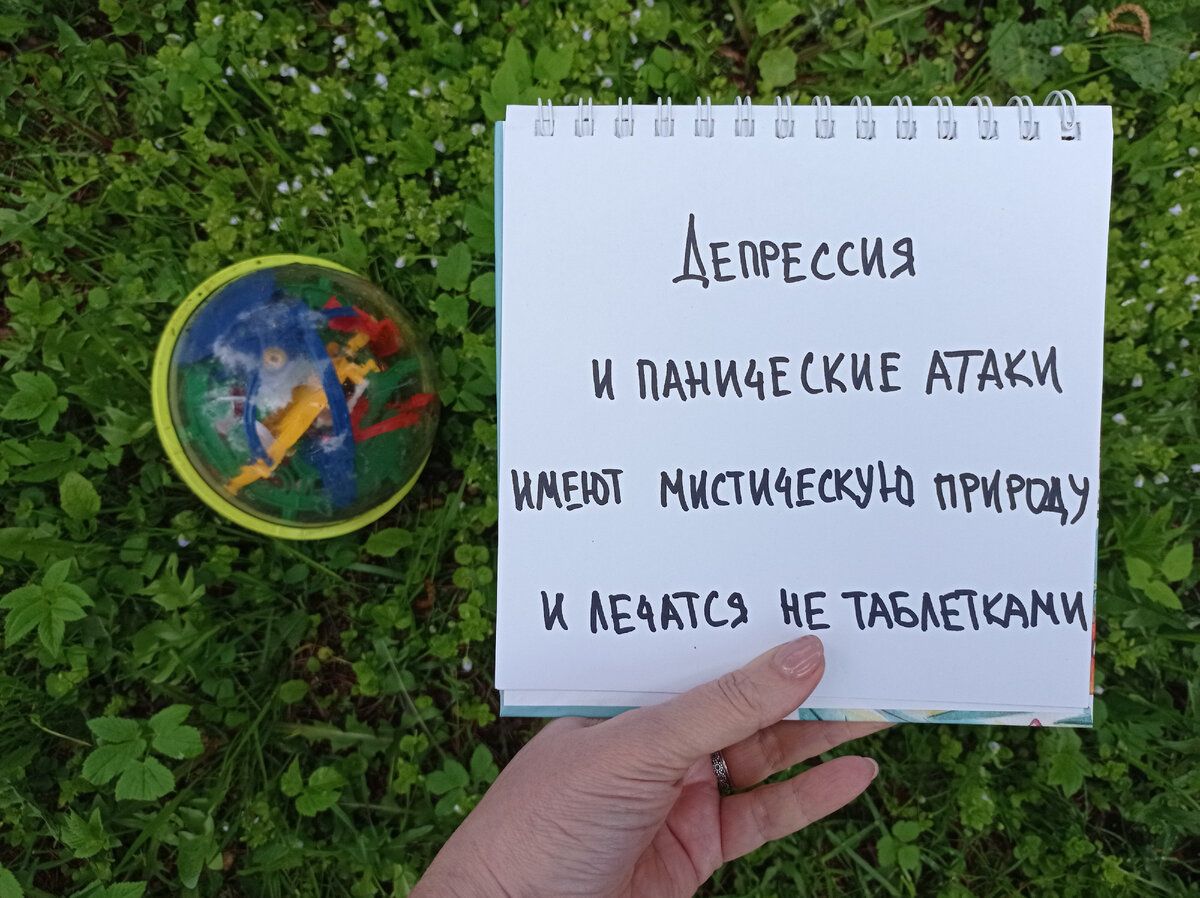 Депрессия
и панические атаки
имеют мистическую природу
и лечатся не таблетками